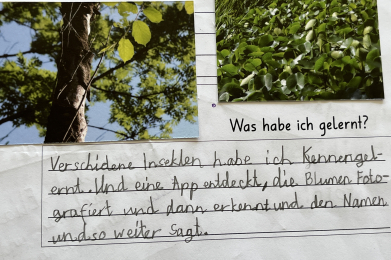 Was habe ich gelernt?
Verschidene Insekten habe ich Kennengel-
ernt. Und eine App entdeckt, die Blumen Foto-
grafiert und dann erkennt und den Namen
und so weiter Sagt.